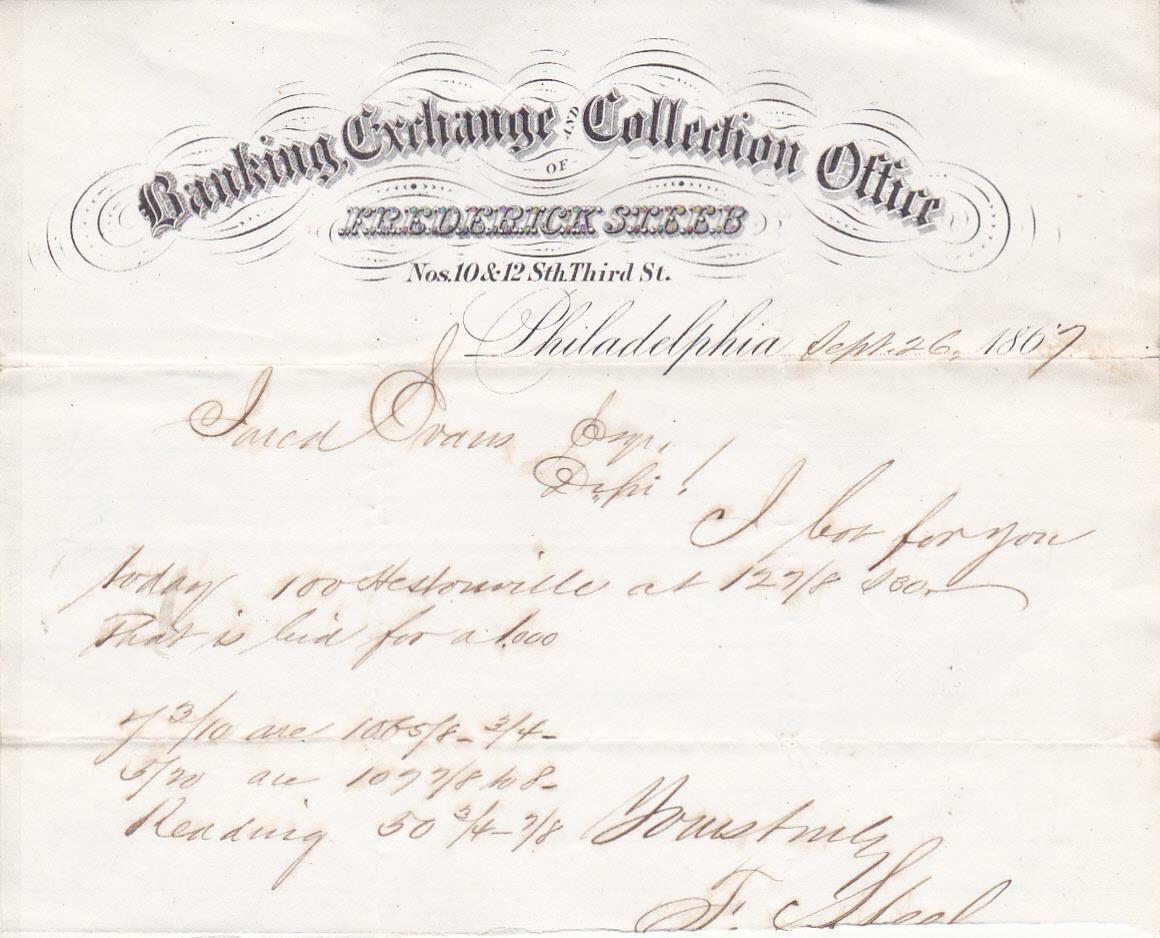 Banking, Exchange AND Collection Office
OF
FREDERICK STEEB
Nos. 10 & 12 Sth. Third St.
Philadelphia Sept. 26, 1867
Jared Evans Esqr.
I bot for you
today 100 Hestonville at 12 7/8 s30.
that is bid for a 1.000
7 3/10 are 106 5/8 - 3/4 -
5/20 are 107 7/8 to 8 -
Reading 50 3/4 - 7/8 Yours truly
F. Steeb